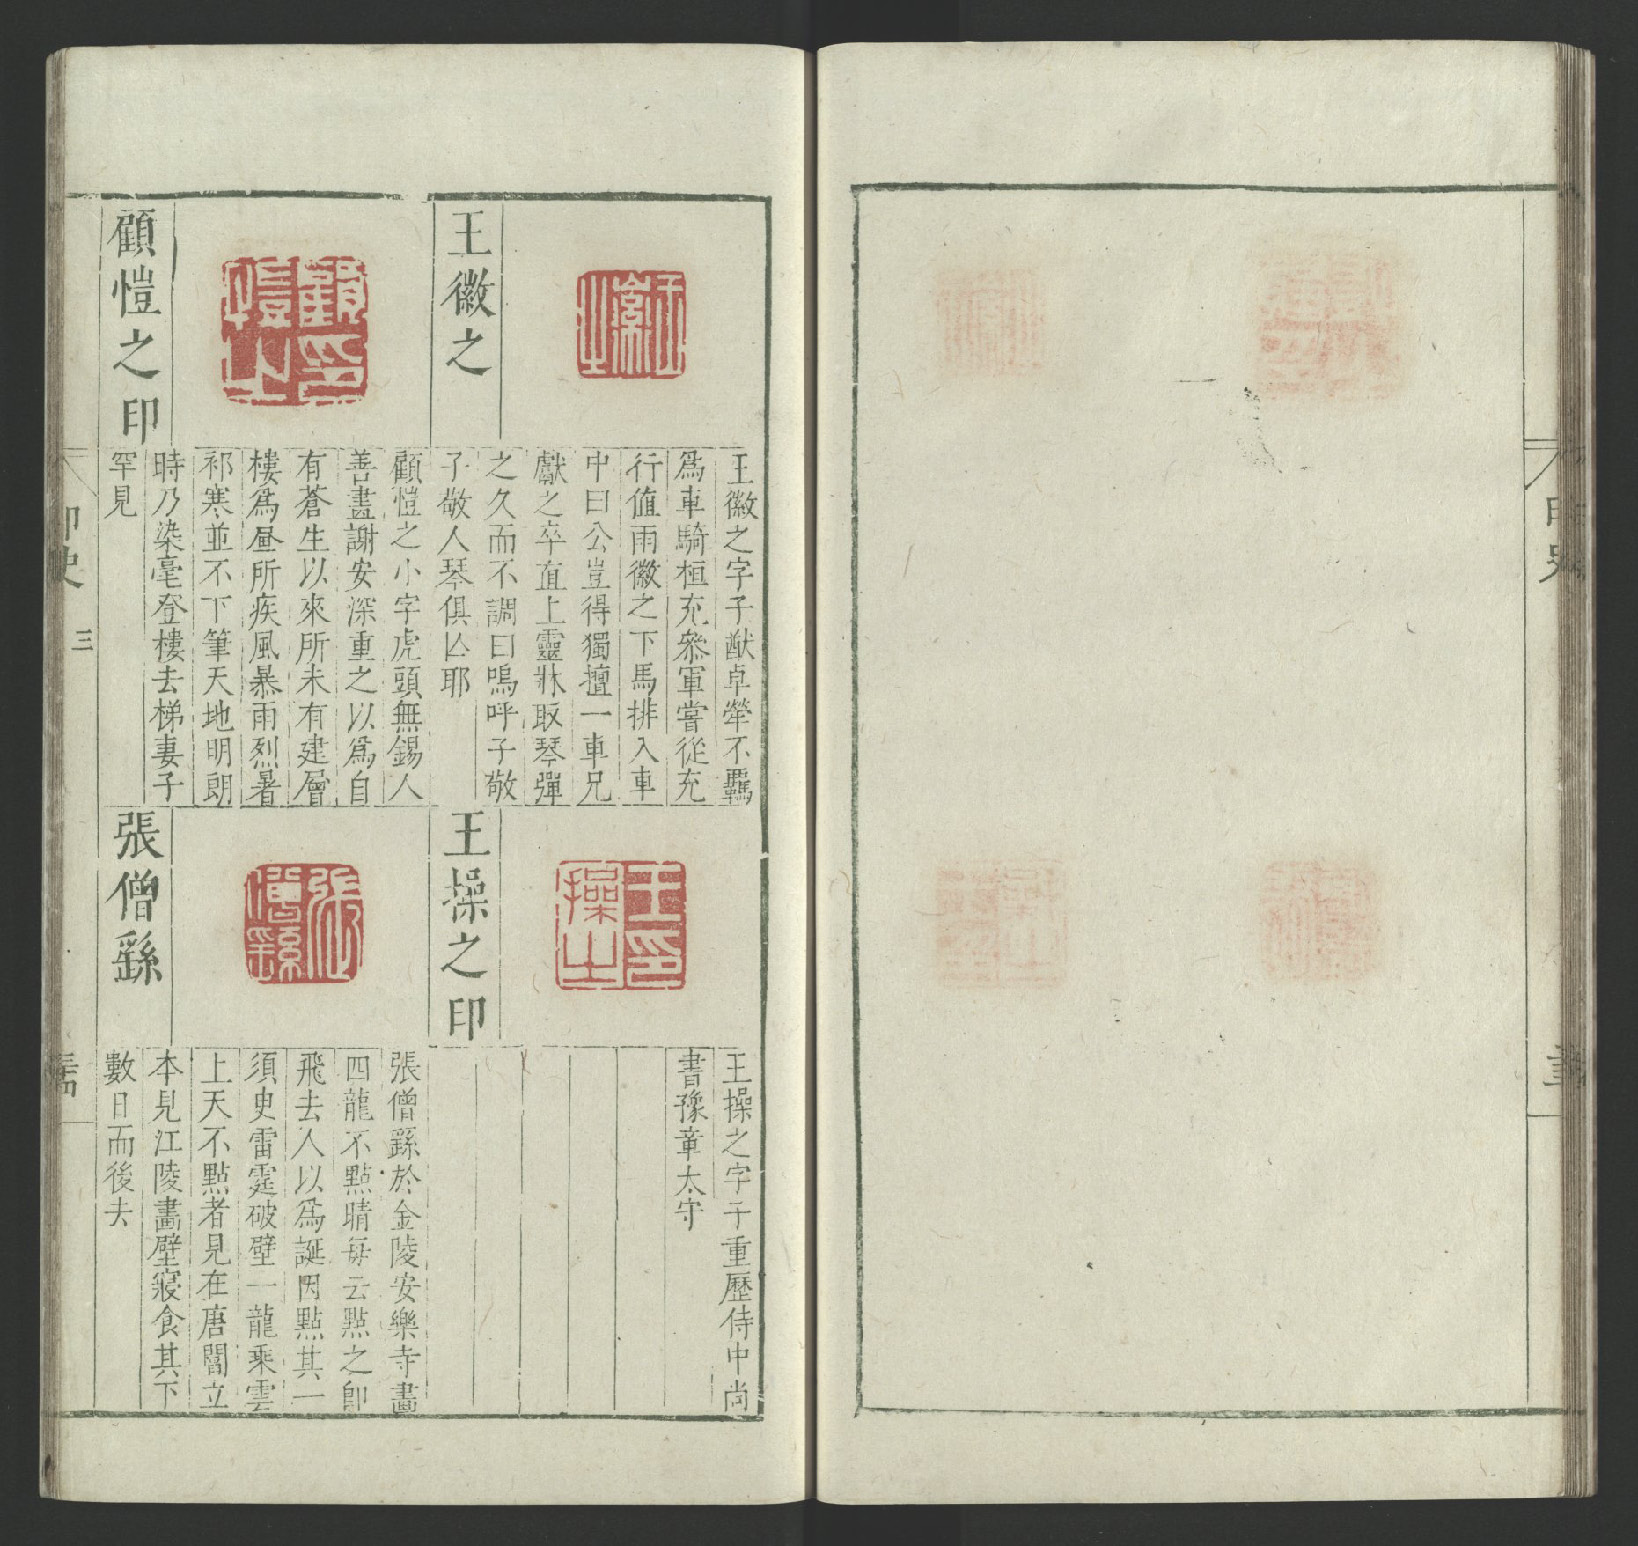 王徽之
王徽之字子猷卓犖不羈
爲車騎桓充參軍嘗從充
行值雨徽之下馬排入車
中曰公豈得獨擅一車兄
獻之卒直上靈牀取琴彈
之久而不調曰嗚呼子敬
子敬人琴俱亾耶
顧愷之印
顧愷之小字虎頭無錫人
善畫謝安深重之以爲自
有蒼生以來所未有建層
樓爲𤰒所疾風暴雨烈暑
祁寒並不下筆天地明朗
時乃染毫登樓去梯妻子
罕見
王操之印
王操之字子重歷侍中尚
書豫章太守
張僧繇
張僧繇於金陵安樂寺畫
四龍不點睛每云點之卽
飛去人以爲誕因點其一
須臾雷霆破壁一龍乘雲
上天不點者見在唐閻立
本見江陵畫壁寢食其下
數日而後去
印史
三